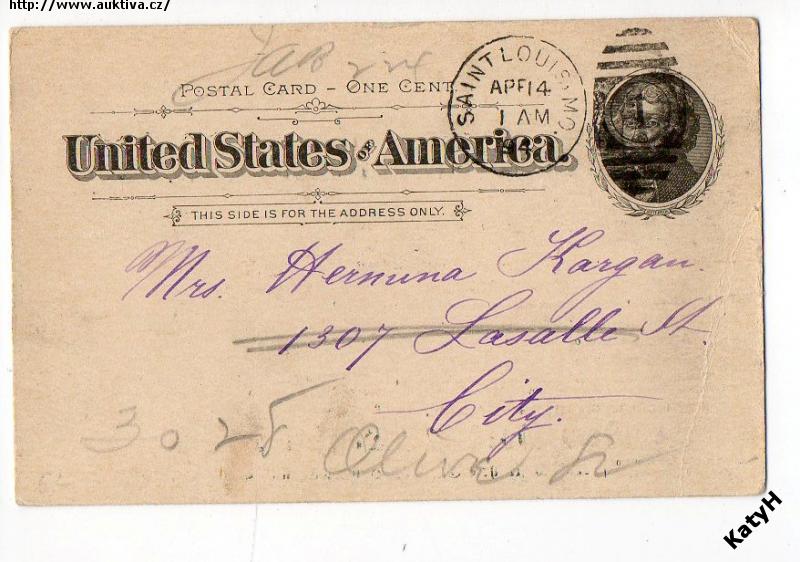 http://www.auktiva.cz/
POSTAL CARD - ONE CENT.
SAINT LOUIS, MO.
APR 14
1 AM
94
1
United States of America.
THIS SIDE IS FOR THE ADDRESS ONLY.
Mrs. Hermina Kargau.
1307 Lasalle St.
City.
3028
Olive St
KatyH